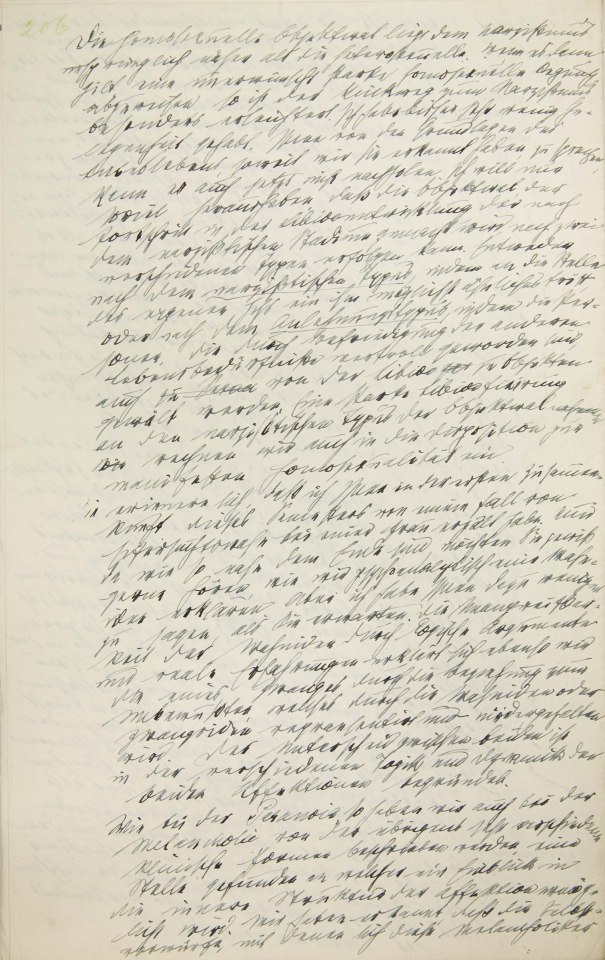 206
Die homosexuelle Objektwahl liegt dem Narzißmus
ursprünglich näher als die heterosexuelle. Wenn es dann
gilt eine unerwünscht starke homosexuelle Regung
abzuweisen so ist der Rückweg zum Narzißmus
besonders erleichtert. Ich habe bisher sehr wenig Ge-
legenheit gehabt. Ihnen von den Grundlagen des
Liebeslebens, soweit wir sie erkannt haben zu sprechen,
kann es auch jetzt nicht nachholen. Ich will nur
soviel herausheben daß die Objektwahl der
Fortschritt in der Libidoentwicklung der nach
dem narzißtischen Stadium gemacht wird nach zwei
verschiedenen Typen erfolgen kann. Entweder
nach dem narzißtischen Typus, indem an die Stelle
des eigenen Ichs ein ihm möglichst ähnliches tritt
oder nach dem Anlehnungstypus, indem die Per-
sonen, die durch Befriedigung der anderen
Lebensbedürfnisse wertvoll geworden sind
auch von der Libido zu Objekten
gewählt werden. Eine starke Libidofixierung
an den narzißtischen Typus der Objektwahl
rechnen wir auch in die Disposition zur
manifesten Homosexualität ein
Sie erinnern sich daß ich Ihnen in der ersten Zusammen-
kunft dieses Semesters von einem Fall von
Eifersuchtswahn bei einer Frau erzählt habe. Nun
da wir so nahe dem Ende sind, möchten Sie gewiß
gerne hören, wie wir psychoanalytisch eine Wahn-
idee erklären. Aber ich habe Ihnen dazu weniger
zu sagen als Sie erwarten. Die Unangreifbar-
keit der Wahnidee durch logische Argumente
und reale Erfahrungen erklärt sich ebenso wie
die eines Zwanges durch die Beziehung zum
Unbewußten welches durch die Wahnidee oder
Zwangsidee repräsentiert und niedergehalten
wird. Der Unterschied zwischen beiden ist
in der verschiedenen Topik und Dynamik der
beiden Affektionen begründet.
Wie bei der Paranoia so haben wir auch bei der
Melancholie von der übrigens sehr verschiedene
klinische Formen beschrieben werden eine
Stelle gefunden an welcher ein Einblick in
die innere Struktur der Affektion mög-
lich wird. Wir haben erkannt daß die Selbst-
vorwürfe, mit denen sich diese Melancholiker